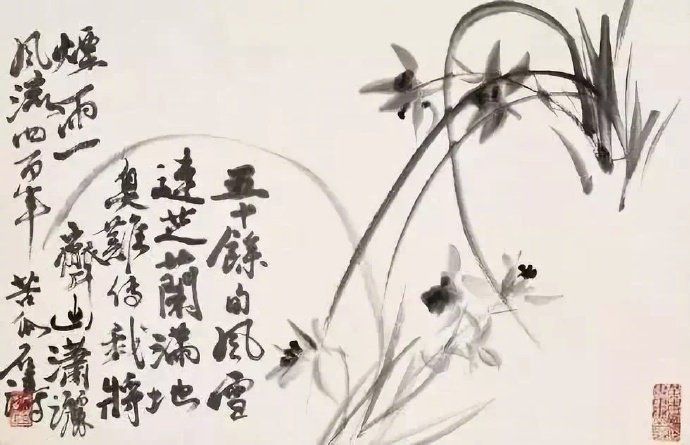 五十餘的風雪
芝蘭滿地
臭難傳我將
煙雨一齊出瀟灑
風流四百年
苦瓜石濤